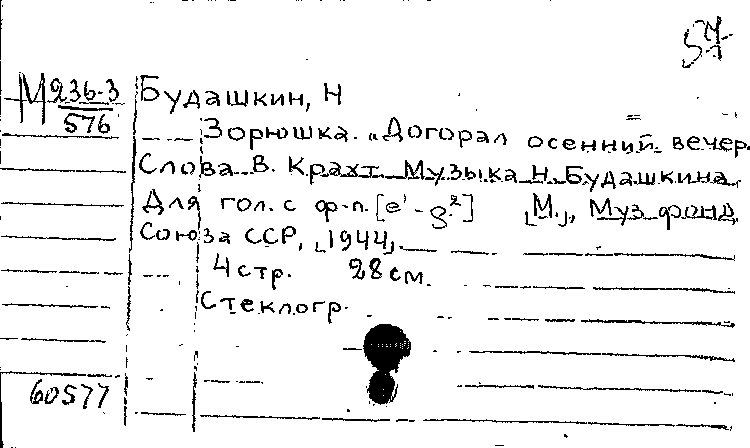 57
М 236-3
576
Будашкин, Н
Зорюшка. „Догорал осенний вечер.
Слова В. Крахт. Музыка Н. Будашкина.
Для гол. с ф-п. [e¹-g²] [М.], Муз. фонд
Союза ССР, [1944].
4 стр. 28 см.
Стеклогр.
60577